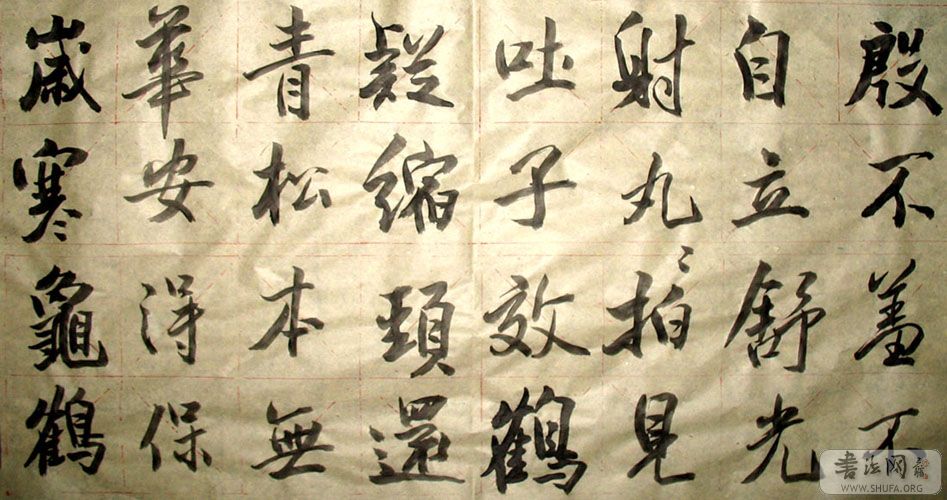 殷不盖不
自立舒光
射丸々拍々見
吐子效鶴
疑縮頸還
青松本無
華安得保
歲寒龜鶴
書法网
WWW.SHUFA.ORG